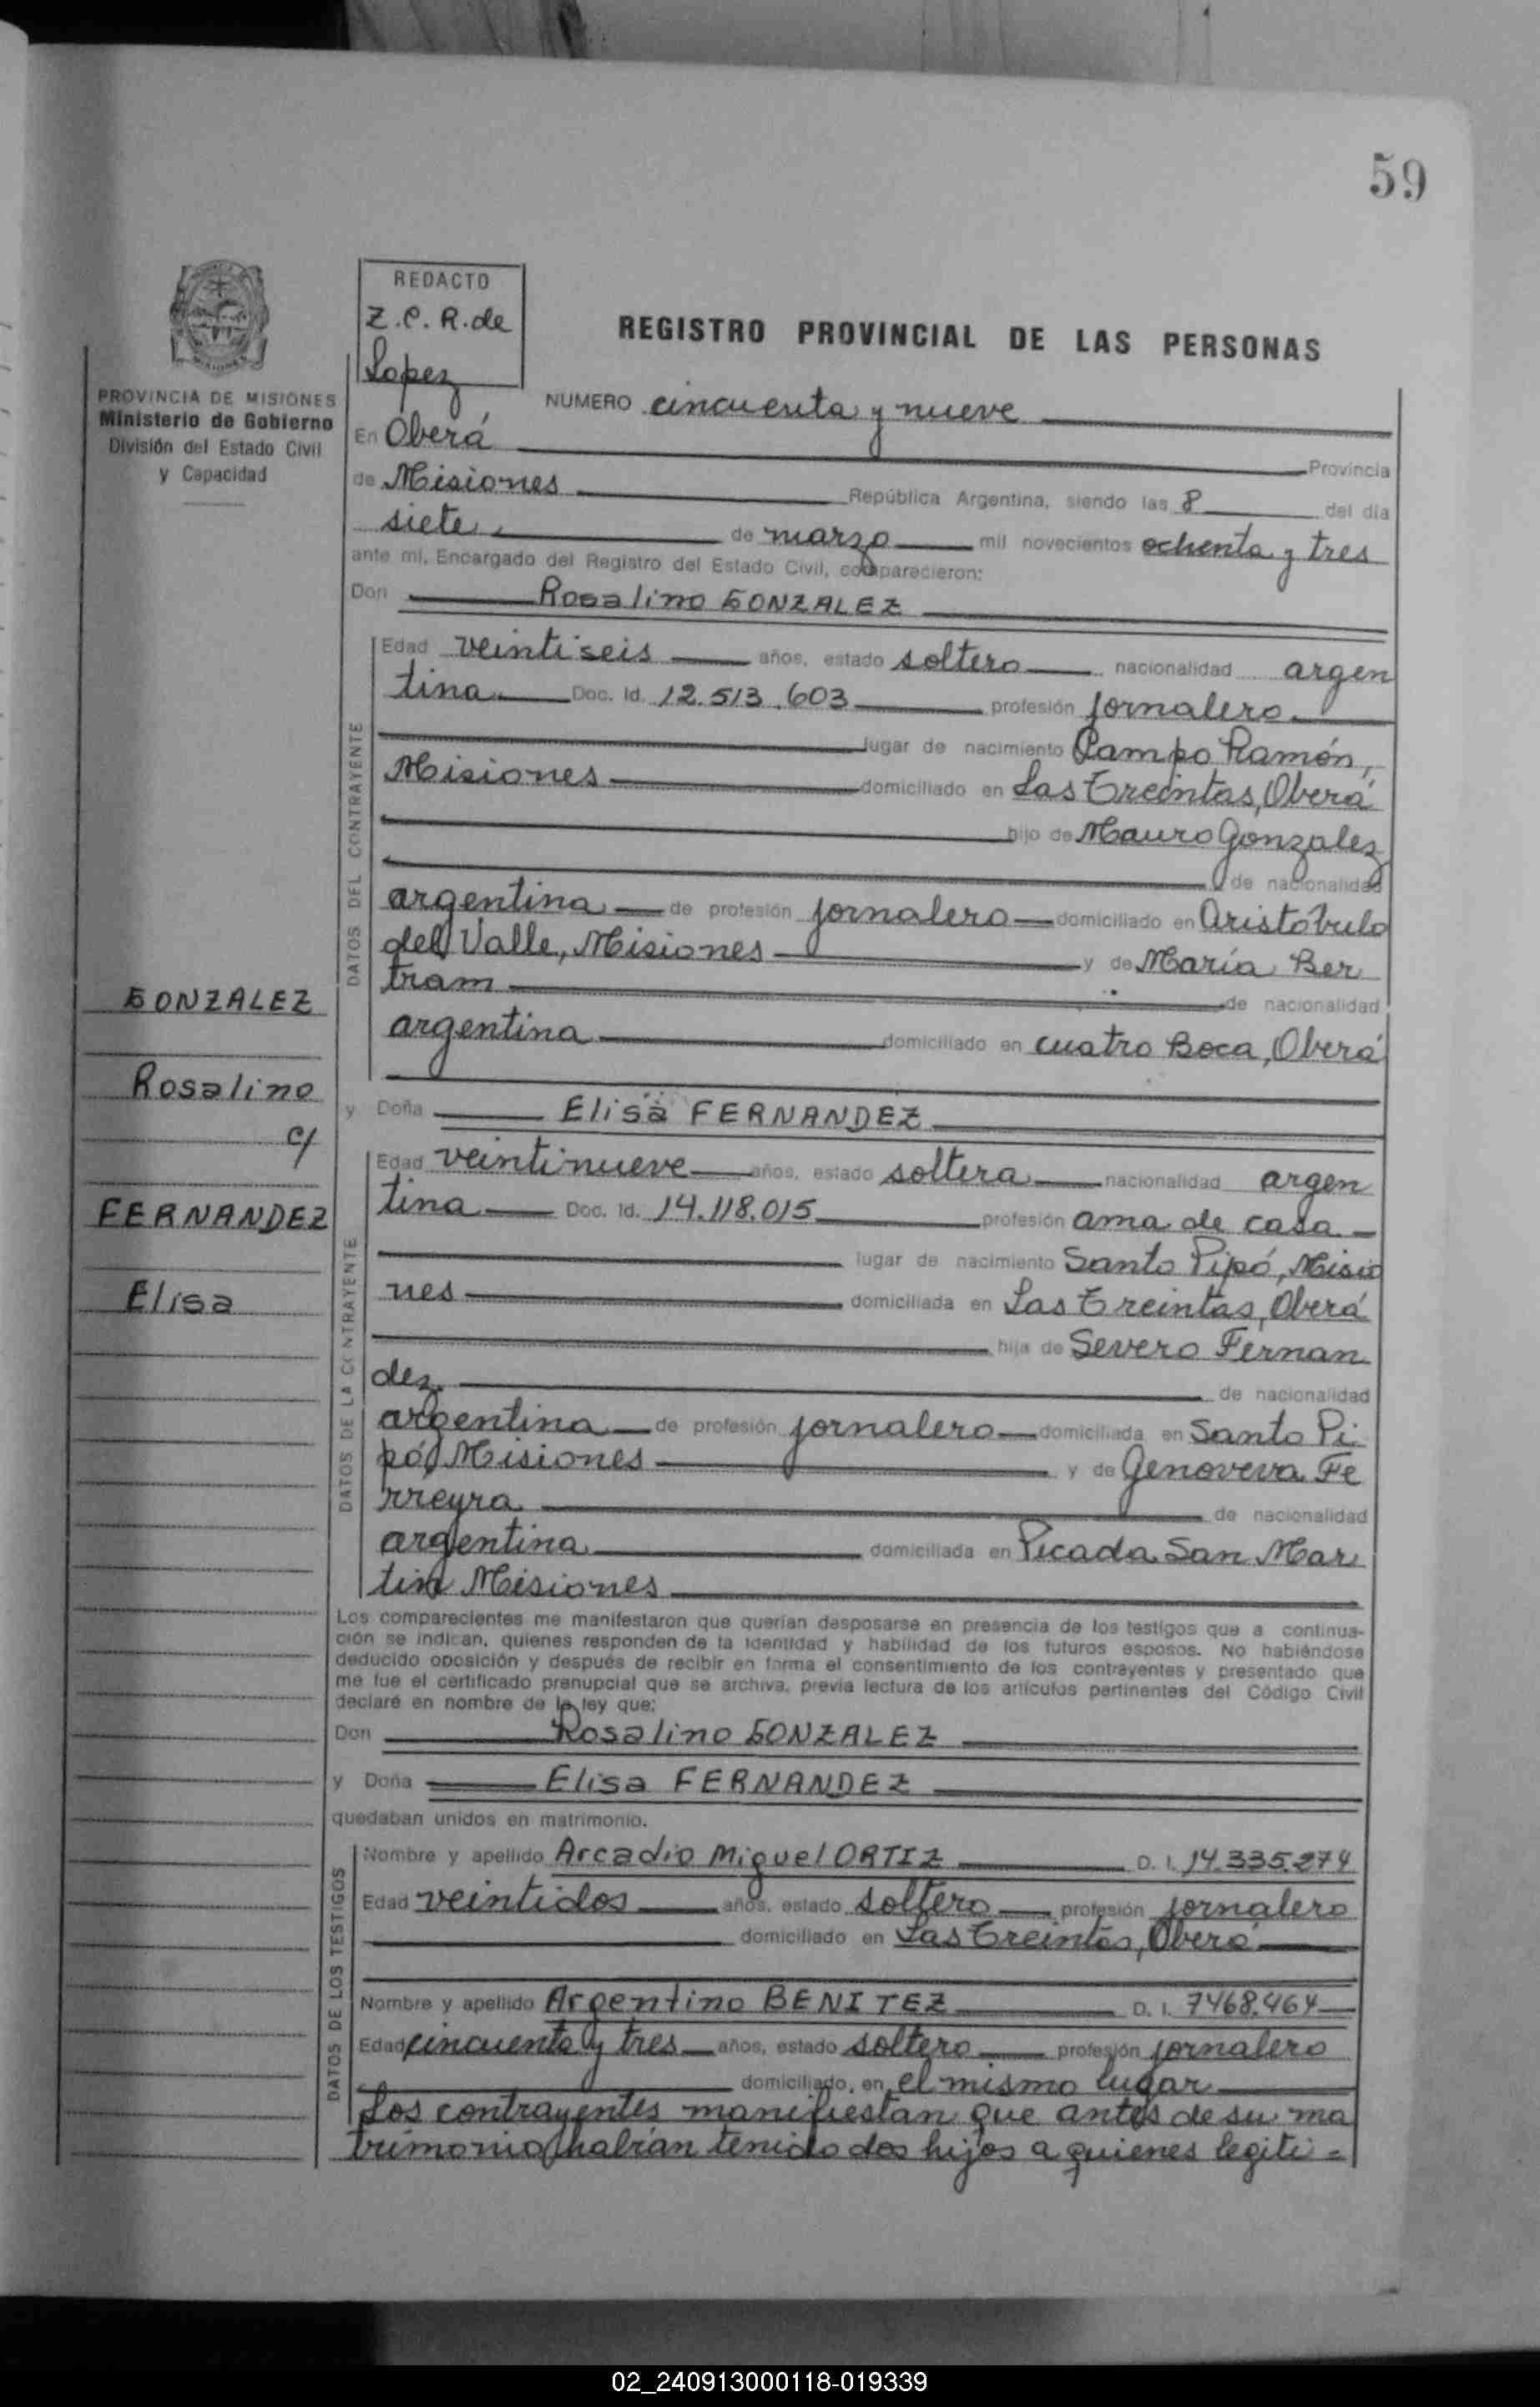 59
REDACTO
Z.C.R. de
Lopez
REGISTRO PROVINCIAL DE LAS PERSONAS
PROVINCIA DE MISIONES
Ministerio de Gobierno
División del Estado Civil
y Capacidad
NUMERO cincuenta y nueve
En Oberá Provincia
de Misiones República Argentina, siendo las 8 del día
siete de marzo mil novecientos ochenta y tres
ante mi, Encargado del Registro del Estado Civil, comparecieron:
Don Rosalino GONZALEZ
DATOS DEL CONTRAYENTE
Edad veintiseis años, estado soltero nacionalidad argen
tina Doc. Id. 12.513.603 profesión jornalero
lugar de nacimiento Campo Ramón,
Misiones domiciliado en Las Treintas, Oberá
hijo de Mauro Gonzalez
de nacionalidad
argentina de profesión jornalero domiciliado en Aristóbulo
del Valle, Misiones y de María Ber
tram de nacionalidad
argentina domiciliado en cuatro Boca, Oberá
GONZALEZ
Rosalino
c/
FERNANDEZ
Elisa
y Doña Elisa FERNANDEZ
DATOS DE LA CONTRAYENTE
Edad veintinueve años, estado soltera nacionalidad argen
tina Doc. Id. 14.118.015 profesión ama de casa
lugar de nacimiento Santo Pipó, Misio
nes domiciliada en Las Treintas, Oberá
hija de Severo Fernan
dez de nacionalidad
argentina de profesión jornalero domiciliada en Santo Pi
pó, Misiones y de Genoveva Fe
rreyra de nacionalidad
argentina domiciliada en Picada San Mar
tin Misiones
Los comparecientes me manifestaron que querían desposarse en presencia de los testigos que a continua-
ción se indican, quienes responden de la identidad y habilidad de los futuros esposos. No habiéndose
deducido oposición y después de recibir en forma el consentimiento de los contrayentes y presentado que
me fue el certificado prenupcial que se archiva, previa lectura de los artículos pertinentes del Código Civil
declaré en nombre de la ley que:
Don Rosalino GONZALEZ
y Doña Elisa FERNANDEZ
quedaban unidos en matrimonio.
DATOS DE LOS TESTIGOS
Nombre y apellido Arcadio Miguel ORTIZ D. I. 14.335.274
Edad veintidos años, estado soltero profesión jornalero
domiciliado en Las Treintas, Oberá
Nombre y apellido Argentino BENITEZ D. I. 7468.464
Edad cincuenta y tres años, estado soltero profesión jornalero
domiciliado en el mismo lugar
Los contrayentes manifiestan que antes de su ma
trimonio habían tenido dos hijos a quienes legiti=
02_240913000118-019339